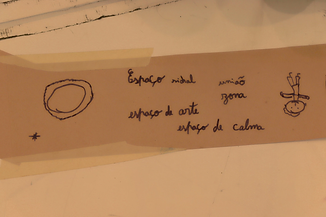 Espaço nidal união
zona
espaço de arte
espaço de calma